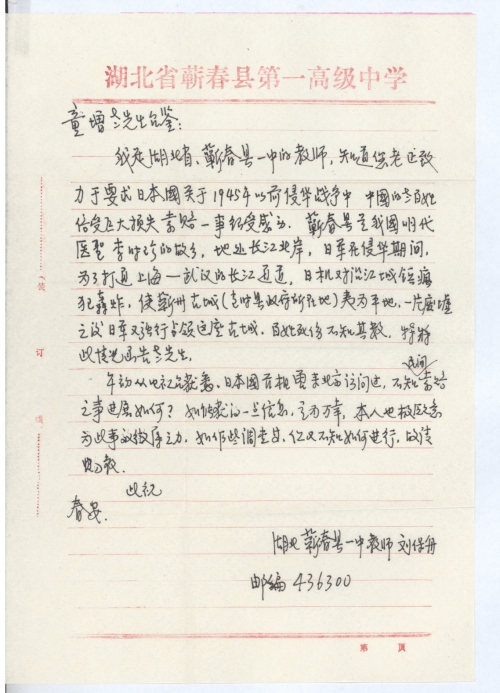 湖北省蕲春县第一高级中学
童增先生台鉴:
我是湖北省蕲春县一中的教师，知道您老正致
力于要求日本國关于1945年以前侵华战争中中國的老百姓
倍受巨大损失索赔一事很受感动。蕲春县是我國明代
医聖李时珍的故乡，地处长江北岸，日军在侵华期间，
为了打通上海—武汉的长江通道，日机对沿江城镇疯
狂轰炸，使蕲州古城(当时县政府所在地)夷为平地，一片废墟
之后日军又强行占领这座古城，百姓死伤不知其数，特将
此情况函告先生。
年初从电视台获悉，日本國首相要来北京访问过，不知民间索赔
之事进展如何？如能获知一点信息，之为万幸，本人也极愿意
为此事的做微薄之力，如作些调查，但又不知如何进行，故请
赐教。
此祝
春安.
湖北蕲春县一中教师 刘保舟
邮编 436300
装
订
线
第 页